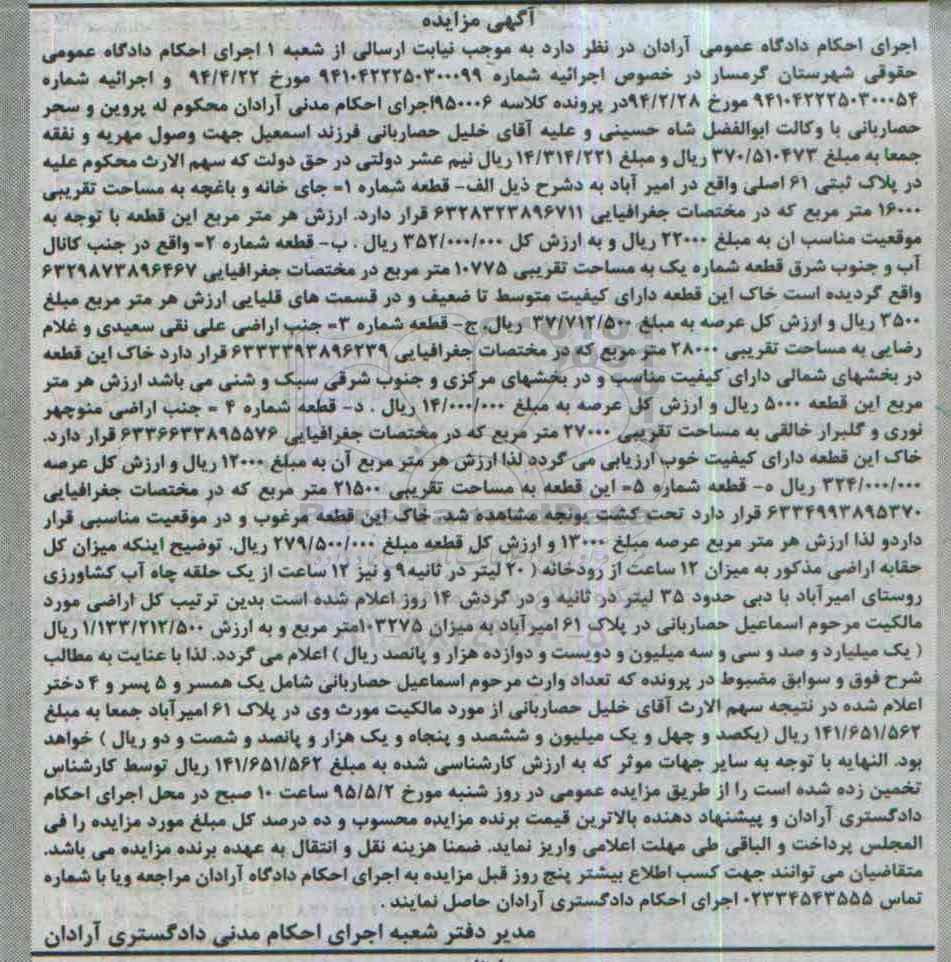 آگهی مزایده
اجرای احکام دادگاه عمومی آرادان در نظر دارد به موجب نیابت ارسالی از شعبه ۱ اجرای احکام دادگاه عمومی
حقوقی شهرستان گرمسار در خصوص اجرائیه شماره ۹۴۱۰۴۲۲۲۵۰۳۰۰۰۹۹ مورخ ۹۴/۴/۲۲ و اجرائیه شماره
۹۴۱۰۴۲۲۲۵۰۳۰۰۰۵۴ مورخ ۹۴/۲/۲۸در پرونده کلاسه ۹۵۰۰۰۶اجرای احکام مدنی آرادان محکوم له پروین و سحر
حصاربانی با وکالت ابوالفضل شاه حسینی و علیه آقای خلیل حصاربانی فرزند اسمعیل جهت وصول مهریه و نفقه
جمعا به مبلغ ۳۷۰/۵۱۰۴۷۳ ریال و مبلغ ۱۴/۳۱۴/۲۲۱ ریال نیم عشر دولتی در حق دولت که سهم الارث محکوم علیه
در پلاک ثبتی ۶۱ اصلی واقع در امیر آباد به دشرح ذیل الف- قطعه شماره ۱= جای خانه و باغچه به مساحت تقریبی
۱۶۰۰۰ متر مربع که در مختصات جغرافیایی ۶۳۲۸۳۲۳۸۹۶۷۱۱ قرار دارد. ارزش هر متر مربع این قطعه با توجه به
موقعیت مناسب ان به مبلغ ۲۲۰۰۰ ریال و به ارزش کل ۳۵۲/۰۰۰/۰۰۰ ریال . ب- قطعه شماره ۲= واقع در جنب کانال
آب و جنوب شرق قطعه شماره یک به مساحت تقریبی ۱۰۷۷۵ متر مربع در مختصات جغرافیایی ۶۳۲۹۸۷۳۸۹۶۴۶۷
واقع گردیده است خاک این قطعه دارای کیفیت متوسط تا ضعیف و در قسمت های قلیایی ارزش هر متر مربع مبلغ
۳۵۰۰ ریال و ارزش کل عرصه به مبلغ ۳۷/۷۱۲/۵۰۰ ریال. ج- قطعه شماره ۳= جنب اراضی علی نقی سعیدی و غلام
رضایی به مساحت تقریبی ۲۸۰۰۰ متر مربع که در مختصات جغرافیایی ۶۳۳۳۳۹۳۸۹۶۲۳۹ قرار دارد خاک این قطعه
در بخشهای شمالی دارای کیفیت مناسب و در بخشهای مرکزی و جنوب شرقی سبک و شنی می باشد ارزش هر متر
مربع این قطعه ۵۰۰۰ ریال و ارزش کل عرصه به مبلغ ۱۴/۰۰۰/۰۰۰ ریال . د- قطعه شماره ۴ = جنب اراضی منوچهر
نوری و گلبرار خالقی به مساحت تقریبی ۲۷۰۰۰ متر مربع که در مختصات جغرافیایی ۶۳۳۶۶۳۳۸۹۵۵۷۶ قرار دارد.
خاک این قطعه دارای کیفیت خوب ارزیابی می گردد لذا ارزش هر متر مربع آن به مبلغ ۱۲۰۰۰ ریال و ارزش کل عرصه
۳۲۴/۰۰۰/۰۰۰ ریال ه- قطعه شماره ۵= این قطعه به مساحت تقریبی ۲۱۵۰۰ متر مربع که در مختصات جغرافیایی
۶۳۳۴۹۹۳۸۹۵۳۷۰ قرار دارد تحت کشت یونجه مشاهده شد. خاک این قطعه مرغوب و در موقعیت مناسبی قرار
داردو لذا ارزش هر متر مربع عرصه مبلغ ۱۳۰۰۰ و ارزش کل قطعه مبلغ ۲۷۹/۵۰۰/۰۰۰ ریال. توضیح اینکه میزان کل
حقابه اراضی مذکور به میزان ۱۲ ساعت از رودخانه ( ۲۰ لیتر در ثانیه۹ و نیز ۱۲ ساعت از یک حلقه چاه آب کشاورزی
روستای امیرآباد با دبی حدود ۳۵ لیتر در ثانیه و در گردش ۱۴ روز اعلام شده است بدین ترتیب کل اراضی مورد
مالکیت مرحوم اسماعیل حصاربانی در پلاک ۶۱ امیرآباد به میزان ۱۰۳۲۷۵متر مربع و به ارزش ۱/۱۳۳/۲۱۲/۵۰۰ ریال
( یک میلیارد و صد و سی و سه میلیون و دویست و دوازده هزار و پانصد ریال ) اعلام می گردد. لذا با عنایت به مطالب
شرح فوق و سوابق مضبوط در پرونده که تعداد وارث مرحوم اسماعیل حصاربانی شامل یک همسر و ۵ پسر و ۴ دختر
اعلام شده در نتیجه سهم الارث آقای خلیل حصاربانی از مورد مالکیت مورث وی در پلاک ۶۱ امیرآباد جمعا به مبلغ
۱۴۱/۶۵۱/۵۶۲ ریال (یکصد و چهل و یک میلیون و ششصد و پنجاه و یک هزار و پانصد و شصت و دو ریال ) خواهد
بود. النهایه با توجه به سایر جهات موثر که به ارزش کارشناسی شده به مبلغ ۱۴۱/۶۵۱/۵۶۲ ریال توسط کارشناس
تخمین زده شده است را از طریق مزایده عمومی در روز شنبه مورخ ۹۵/۵/۲ ساعت ۱۰ صبح در محل اجرای احکام
دادگستری آرادان و پیشنهاد دهنده بالاترین قیمت برنده مزایده محسوب و ده درصد کل مبلغ مورد مزایده را فی
المجلس پرداخت و الباقی طی مهلت اعلامی واریز نماید. ضمنا هزینه نقل و انتقال به عهده برنده مزایده می باشد.
متقاضیان می توانند جهت کسب اطلاع بیشتر پنج روز قبل مزایده به اجرای احکام دادگاه آرادان مراجعه ویا با شماره
تماس ۰۲۳۳۴۵۴۳۵۵۵ اجرای احکام دادگستری آرادان حاصل نمایند .
مدیر دفتر شعبه اجرای احکام مدنی دادگستری آرادان